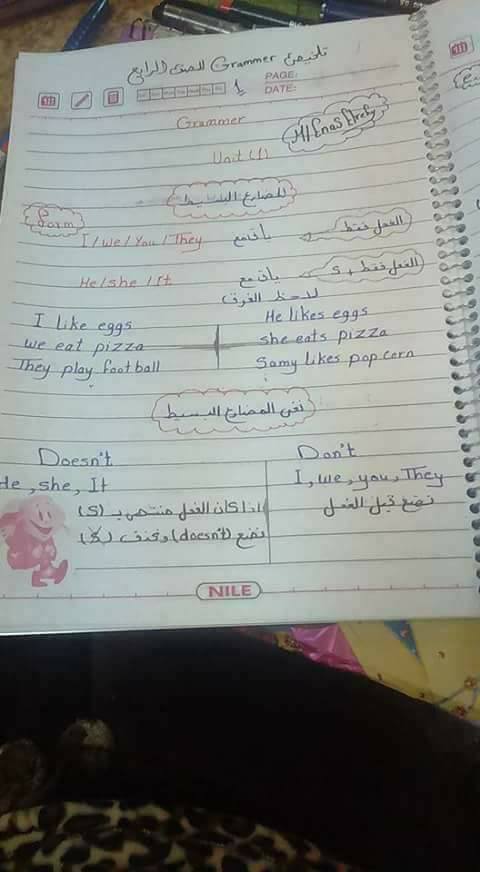 تلخيص Grammer للصف الرابع
PAGE:
DATE:
1
Grammer
M/Enas
Unit (1)
المضارع البسيط
Form
I / we / You / They يأتي مع الفعل فقط
He / she / It يأتي مع الفعل فقط + s
لاحظ الفرق
I like eggs He likes eggs
we eat pizza she eats pizza
They play football Samy likes pop corn
نفى المضارع البسيط
Doesn't Don't
He, she, It I, we, you, They
اذا كان الفعل منتهى بـ (s) نضع قبل الفعل
نضع (doesn't) ونحذف (s)
NILE